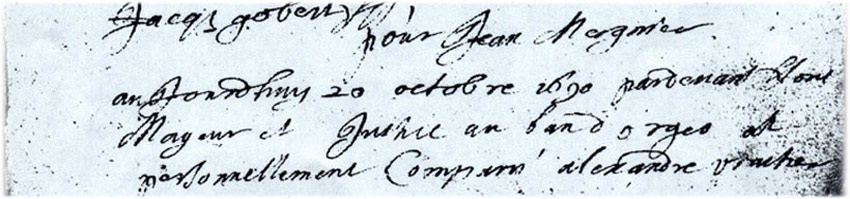 Jacq gobert
pour Jean Mergnier
aujourdhuy 20 octobre 1690 pardevant
Mayeur et Justice au band orgeo at
personnellement Comparu alexandre